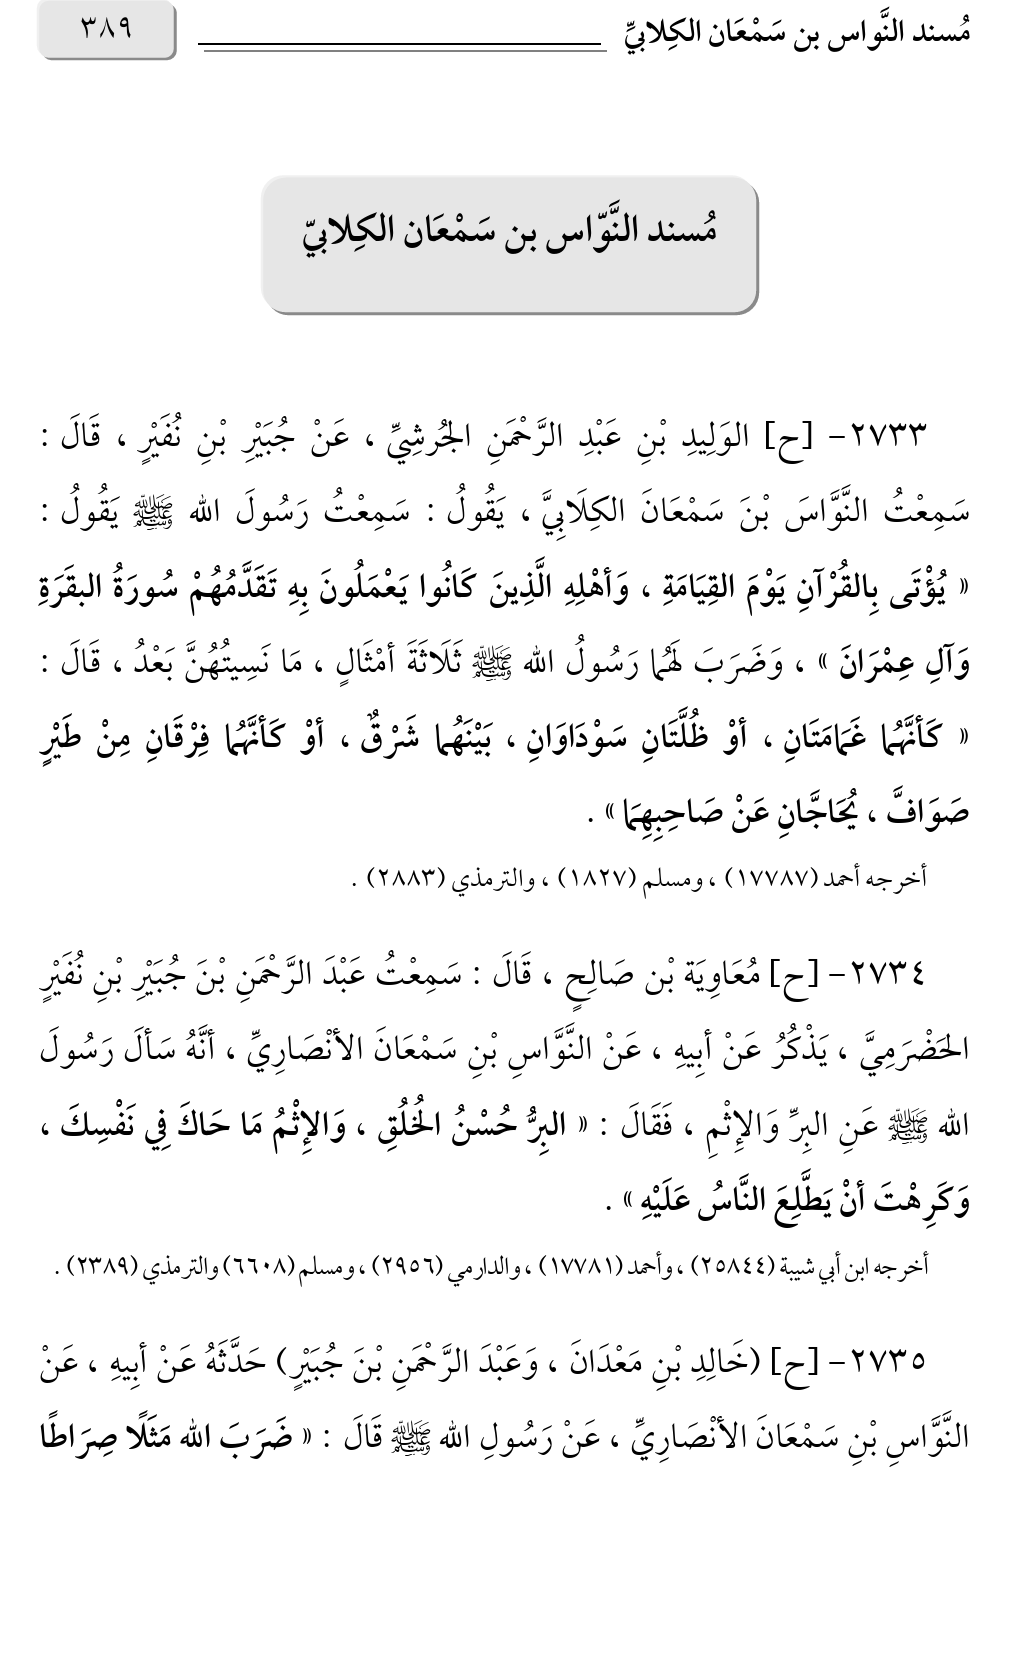 مُسند النَّواس بن سَمْعَان الكِلابيِّ
٣٨٩
مُسند النَّوّاس بن سَمْعَان الكِلابيّ
٢٧٣٣- [ح] الوَلِيدِ بْنِ عَبْدِ الرَّحْمَنِ الجُرشِيِّ ، عَنْ جُبَيْرِ بْنِ نُفَيْرٍ ، قَالَ :
سَمِعْتُ النَّوَّاسَ بْنَ سَمْعَانَ الكِلَابِيَّ ، يَقُولُ : سَمِعْتُ رَسُولَ الله ﷺ يَقُولُ :
« يُؤْتَى بِالقُرْآنِ يَوْمَ القِيَامَةِ ، وَأهْلِهِ الَّذِينَ كَانُوا يَعْمَلُونَ بِهِ تَقَدَّمُهُمْ سُورَةُ البقَرَةِ
وَآلِ عِمْرَانَ » ، وَضَرَبَ لَهُما رَسُولُ الله ﷺ ثَلَاثَةَ أمْثَالٍ ، مَا نَسِيتُهُنَّ بَعْدُ ، قَالَ :
« كَأنَّهُما غَمَامَتَانِ ، أوْ ظُلَّتَانِ سَوْدَاوَانِ ، بَيْنَهُما شَرْقٌ ، أوْ كَأنَّهُما فِرْقَانِ مِنْ طَيْرٍ
صَوَافَّ ، يُحَاجَّانِ عَنْ صَاحِبِهِمَا » .
أخرجه أحمد (١٧٧٨٧) ، ومسلم (١٨٢٧) ، والترمذي (٢٨٨٣) .
٢٧٣٤- [ح] مُعَاوِيَة بْن صَالِحٍ ، قَالَ : سَمِعْتُ عَبْدَ الرَّحْمَنِ بْنَ جُبَيْرِ بْنِ نُفَيْرٍ
الحَضْرَمِيَّ ، يَذْكُرُ عَنْ أبِيهِ ، عَنْ النَّوَّاسِ بْنِ سَمْعَانَ الأنْصَارِيِّ ، أنَّهُ سَألَ رَسُولَ
الله ﷺ عَنِ البِرِّ وَالإِثْمِ ، فَقَالَ : « البِرُّ حُسْنُ الخُلُقِ ، وَالإِثْمُ مَا حَاكَ فِي نَفْسِكَ ،
وَكَرِهْتَ أنْ يَطَّلِعَ النَّاسُ عَلَيْهِ » .
أخرجه ابن أبي شيبة (٢٥٨٤٤) ، وأحمد (١٧٧٨١) ، والدارمي (٢٩٥٦) ، ومسلم (٦٦٠٨) والترمذي (٢٣٨٩) .
٢٧٣٥- [ح] (خَالِدِ بْنِ مَعْدَانَ ، وَعَبْدَ الرَّحْمَنِ بْنَ جُبَيْرٍ) حَدَّثَهُ عَنْ أبِيهِ ، عَنْ
النَّوَّاسِ بْنِ سَمْعَانَ الأنْصَارِيِّ ، عَنْ رَسُولِ الله ﷺ قَالَ : « ضَرَبَ الله مَثَلًا صِرَاطًا